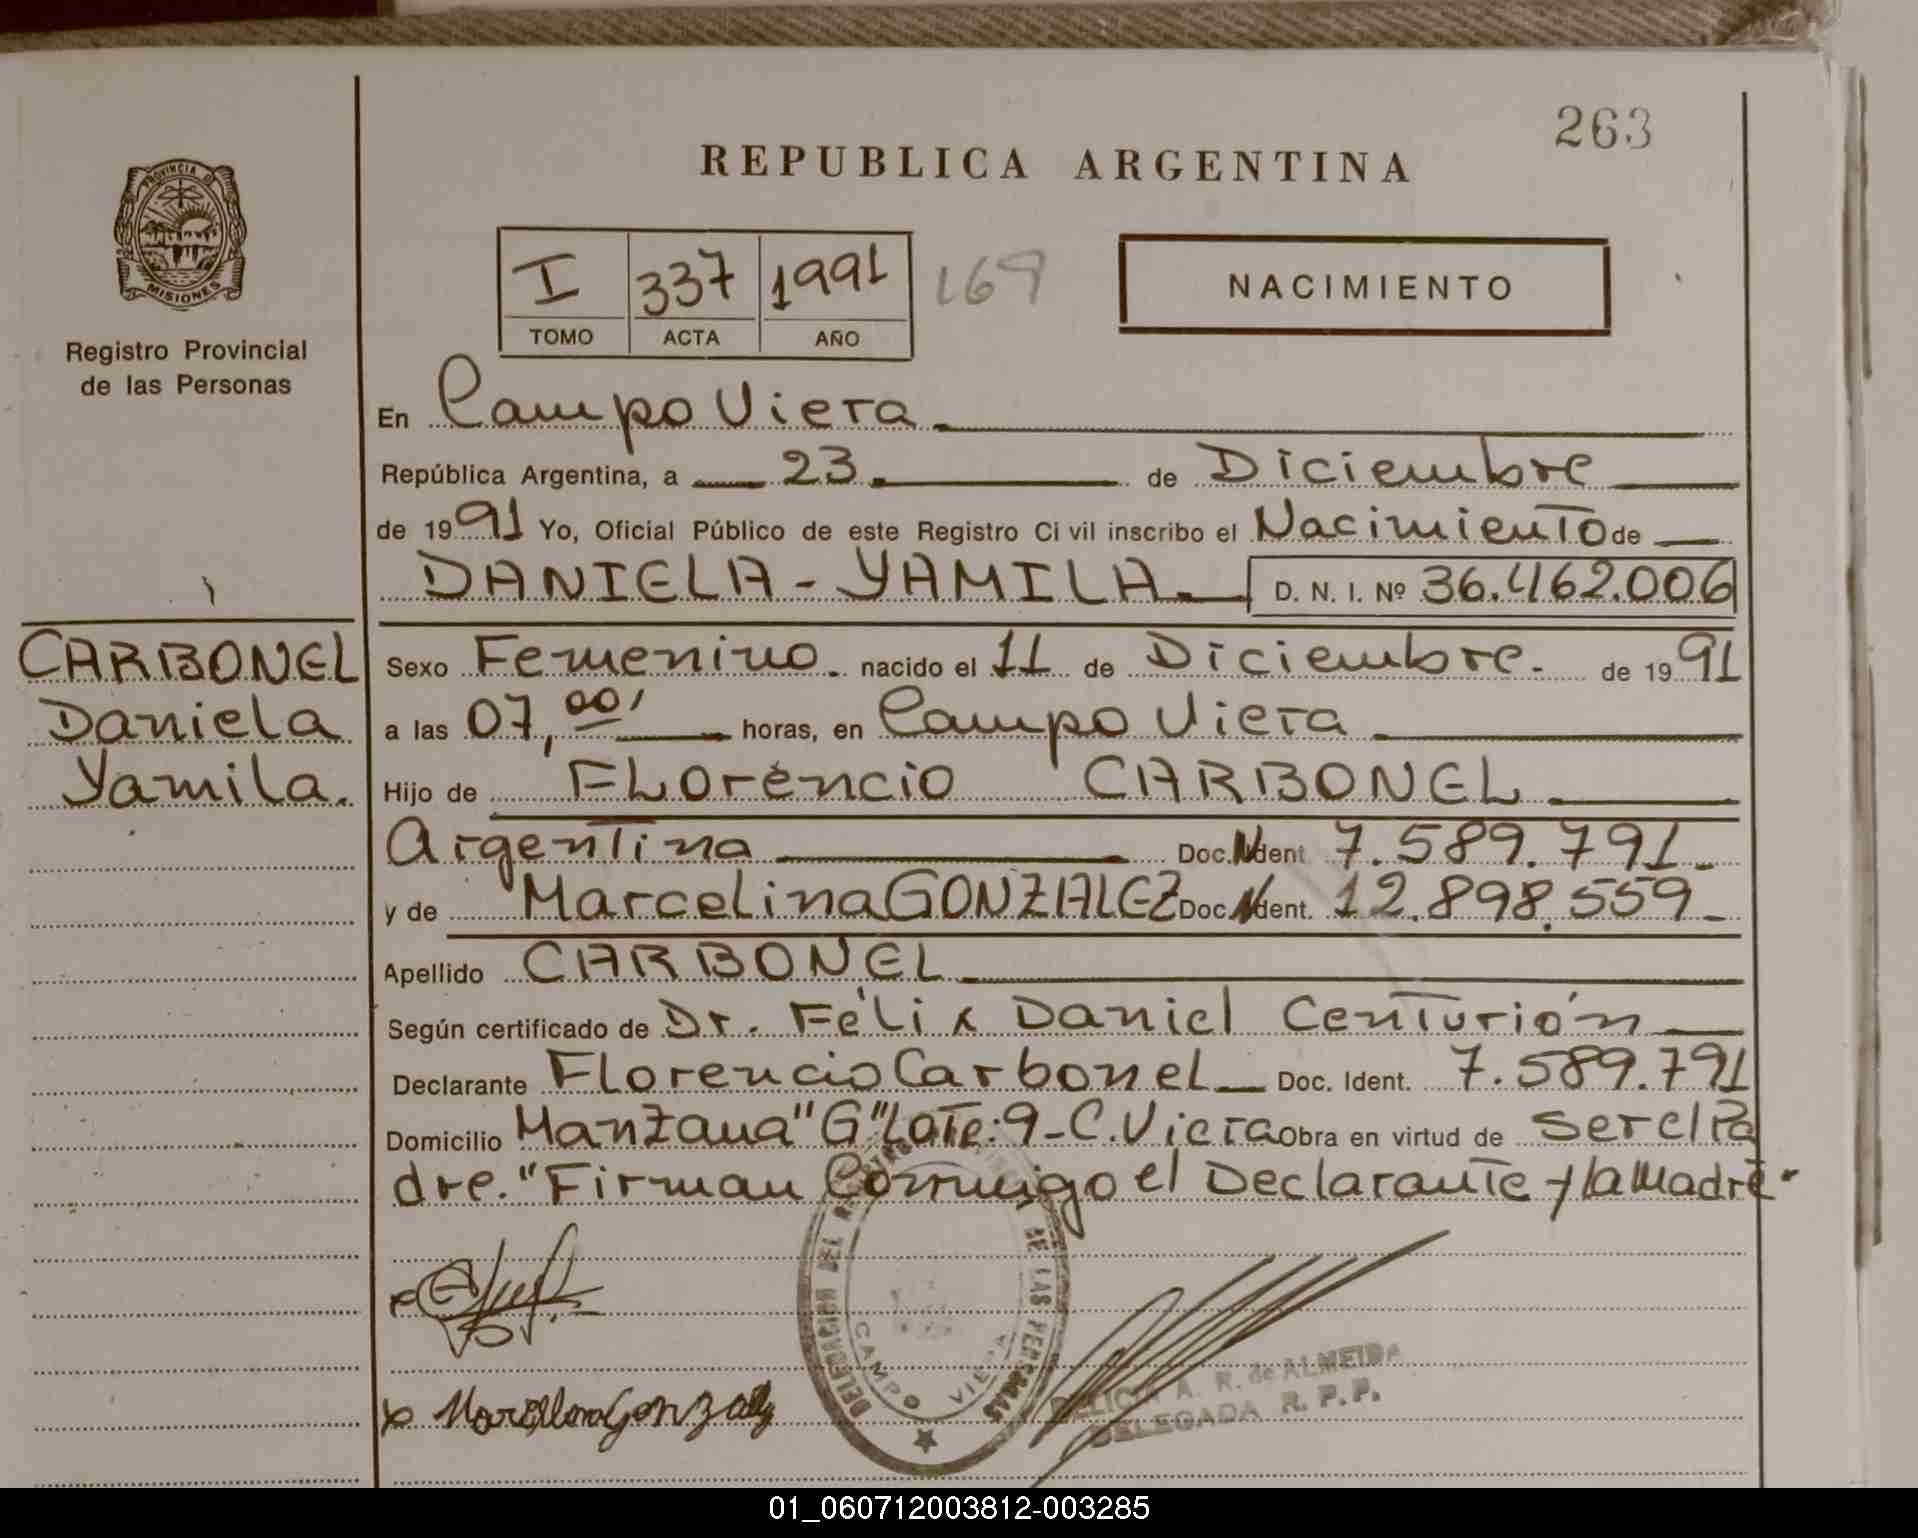 263
REPUBLICA ARGENTINA
PROVINCIA D
MISIONES
Registro Provincial
de las Personas
I 337 1991 169
TOMO ACTA AÑO
NACIMIENTO
En Campo Viera
República Argentina, a 23 de Diciembre
de 1991 Yo, Oficial Público de este Registro Ci vil inscribo el Nacimiento de
DANIELA - YAMILA D. N. I. Nº 36.462.006
CARBONEL
Daniela
Yamila.
Sexo Femenino. nacido el 11 de Diciembre. de 1991
a las 07,00' horas, en Campo Viera
Hijo de Florencio CARBONEL
Argentina Doc. Ident 7.589.791
y de Marcelina GONZALEZ Doc. Ident. 12.898.559
Apellido CARBONEL
Según certificado de Dr. Félix Daniel Centurión
Declarante Florencio Carbonel Doc. Ident. 7.589.791
Domicilio Manzana "G" Lote: 9 - C. Viera Obra en virtud de ser el Pa
dre. "Firman Conmigo el Declarante y la Madre.
DELEGACION DEL DE LAS PERSONAS
CAMPO VIERA
Marcelina Gonzalez
DELICIA A. R. de ALMEIDA
DELEGADA R. P. P.
01_060712003812-003285